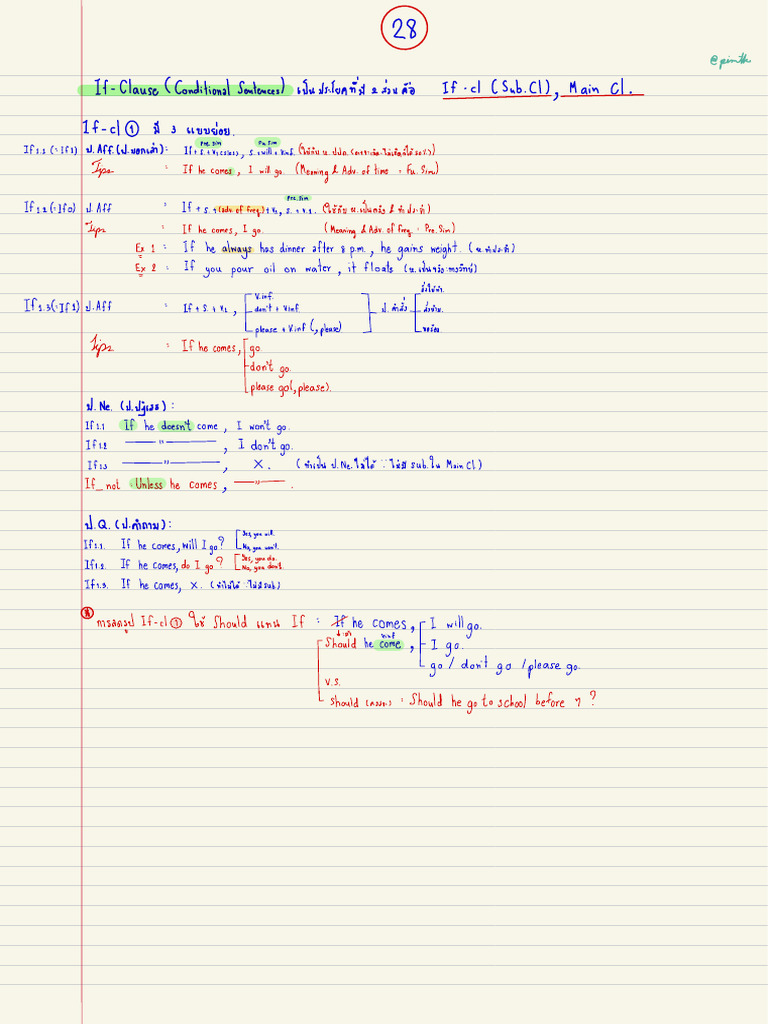 28
@pinth
If-Clause (Conditional Sentences) เป็นประโยคที่มี 2 ส่วนคือ If-cl (Sub.Cl), Main Cl.
If-cl ① มี 3 แบบย่อย.
Pre.Sim Fu.Sim
If 1.1 (=If1) ป.Aff.(ป.บอกเล่า) : If + S. + V1 , S. + will + Vinf.
Tips : If he comes, I will go. (Meaning & Adv. of time = Fu.Sim)
Pre.Sim
If 1.2 (=If0) ป.Aff : If + S. + (adv of freq) + V1, S. + V1.
Tips : If he comes, I go. (Meaning & Adv. of freq = Pre.Sim)
Ex 1 : If he always has dinner after 8 p.m., he gains weight.
Ex 2 : If you pour oil on water, it floats
If 1.3 (=If1) ป.Aff : If + S. + V1 , V.inf. ป.คำสั่ง
don't + Vinf
please + Vinf (, please) ขอร้อง
Tips : If he comes, go.
don't go.
please go(, please).
ป.Ne. (ป.ปฏิเสธ) :
If 1.1 If he doesn't come, I won't go.
If 1.2 ——"——, I don't go.
If 1.3 ——"——, X. (ทำเป็น ป.Ne.ไม่ได้ ∵ ไม่มี sub.ใน Main Cl)
If_not = Unless he comes, —"—.
ป.Q. (ป.คำถาม) :
If 1.1. If he comes, will I go? Yes, you will.
No, you won't.
If 1.2. If he comes, do I go? Yes, you do.
No, you don't.
If 1.3. If he comes, X. (ทำไม่ได้ ∵ ไม่มี sub)
การลดรูป If-cl ① ใช้ Should แทน If : If he comes, I will go.
Should he come, I go.
go / don't go / please go.
V.S.
Should : Should he go to school before ?